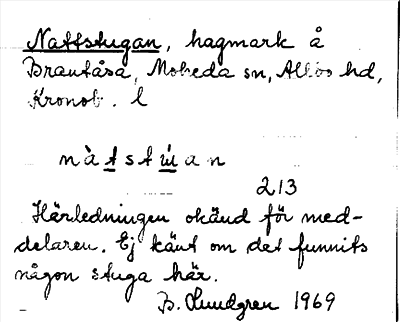 Nattstugan, hagmark å
Brantåsa, Moheda sn, Allbo hd,
Kronob. l
nàtstúan
213
Härledningen okänd för med-
delaren. Ej känt om det funnits
någon stuga här.
B. Lundgren 1969